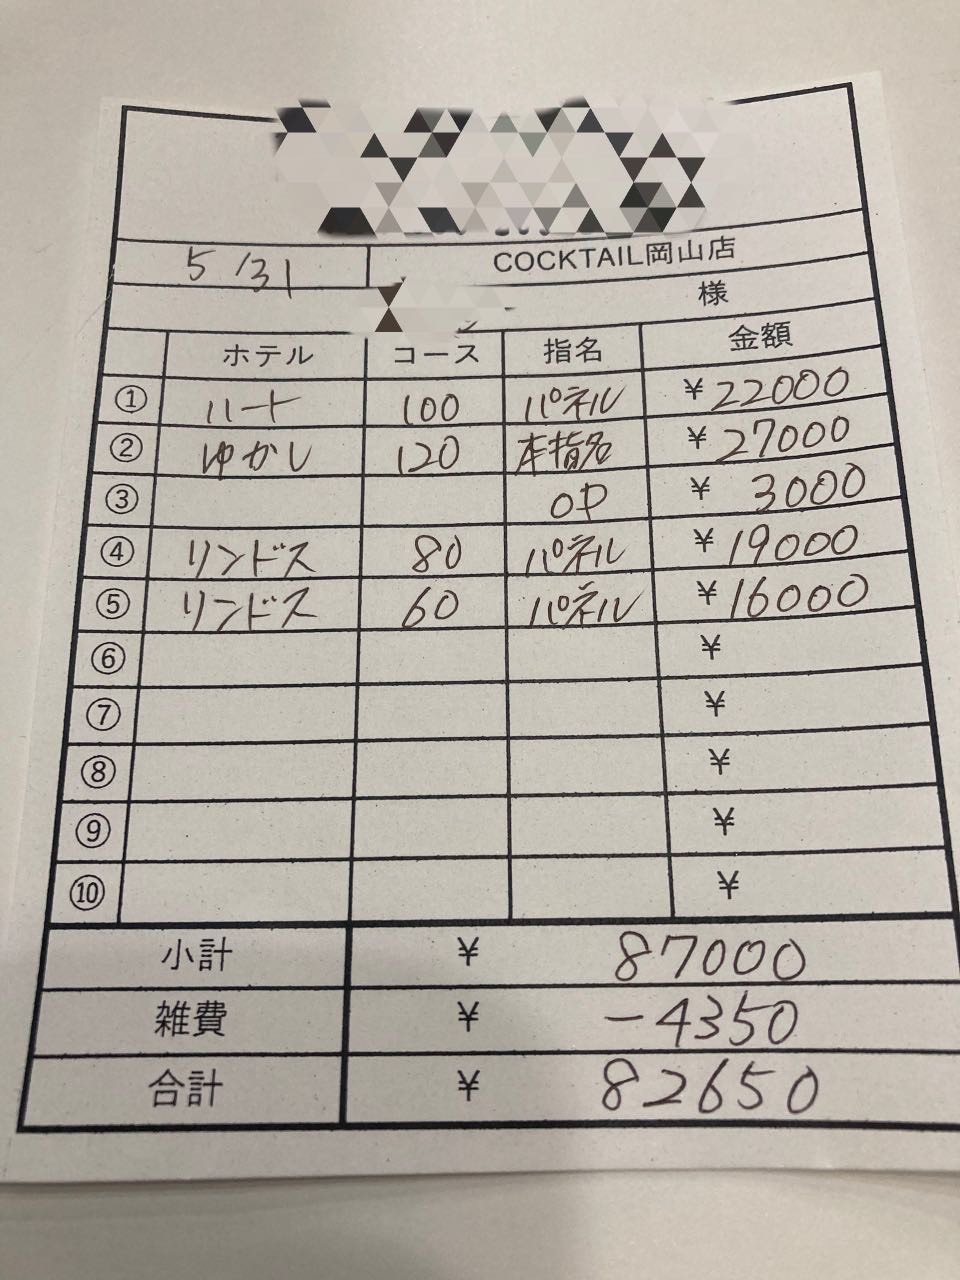 5/31 COCKTAIL岡山店
様
ホテル コース 指名 金額
① ハート 100 パネル ¥22000
② ゆかし 120 本指名 ¥27000
③ OP ¥3000
④ リンドス 80 パネル ¥19000
⑤ リンドス 60 パネル ¥16000
⑥ ¥
⑦ ¥
⑧ ¥
⑨ ¥
⑩ ¥
小計 ¥ 87000
雑費 ¥ -4350
合計 ¥ 82650